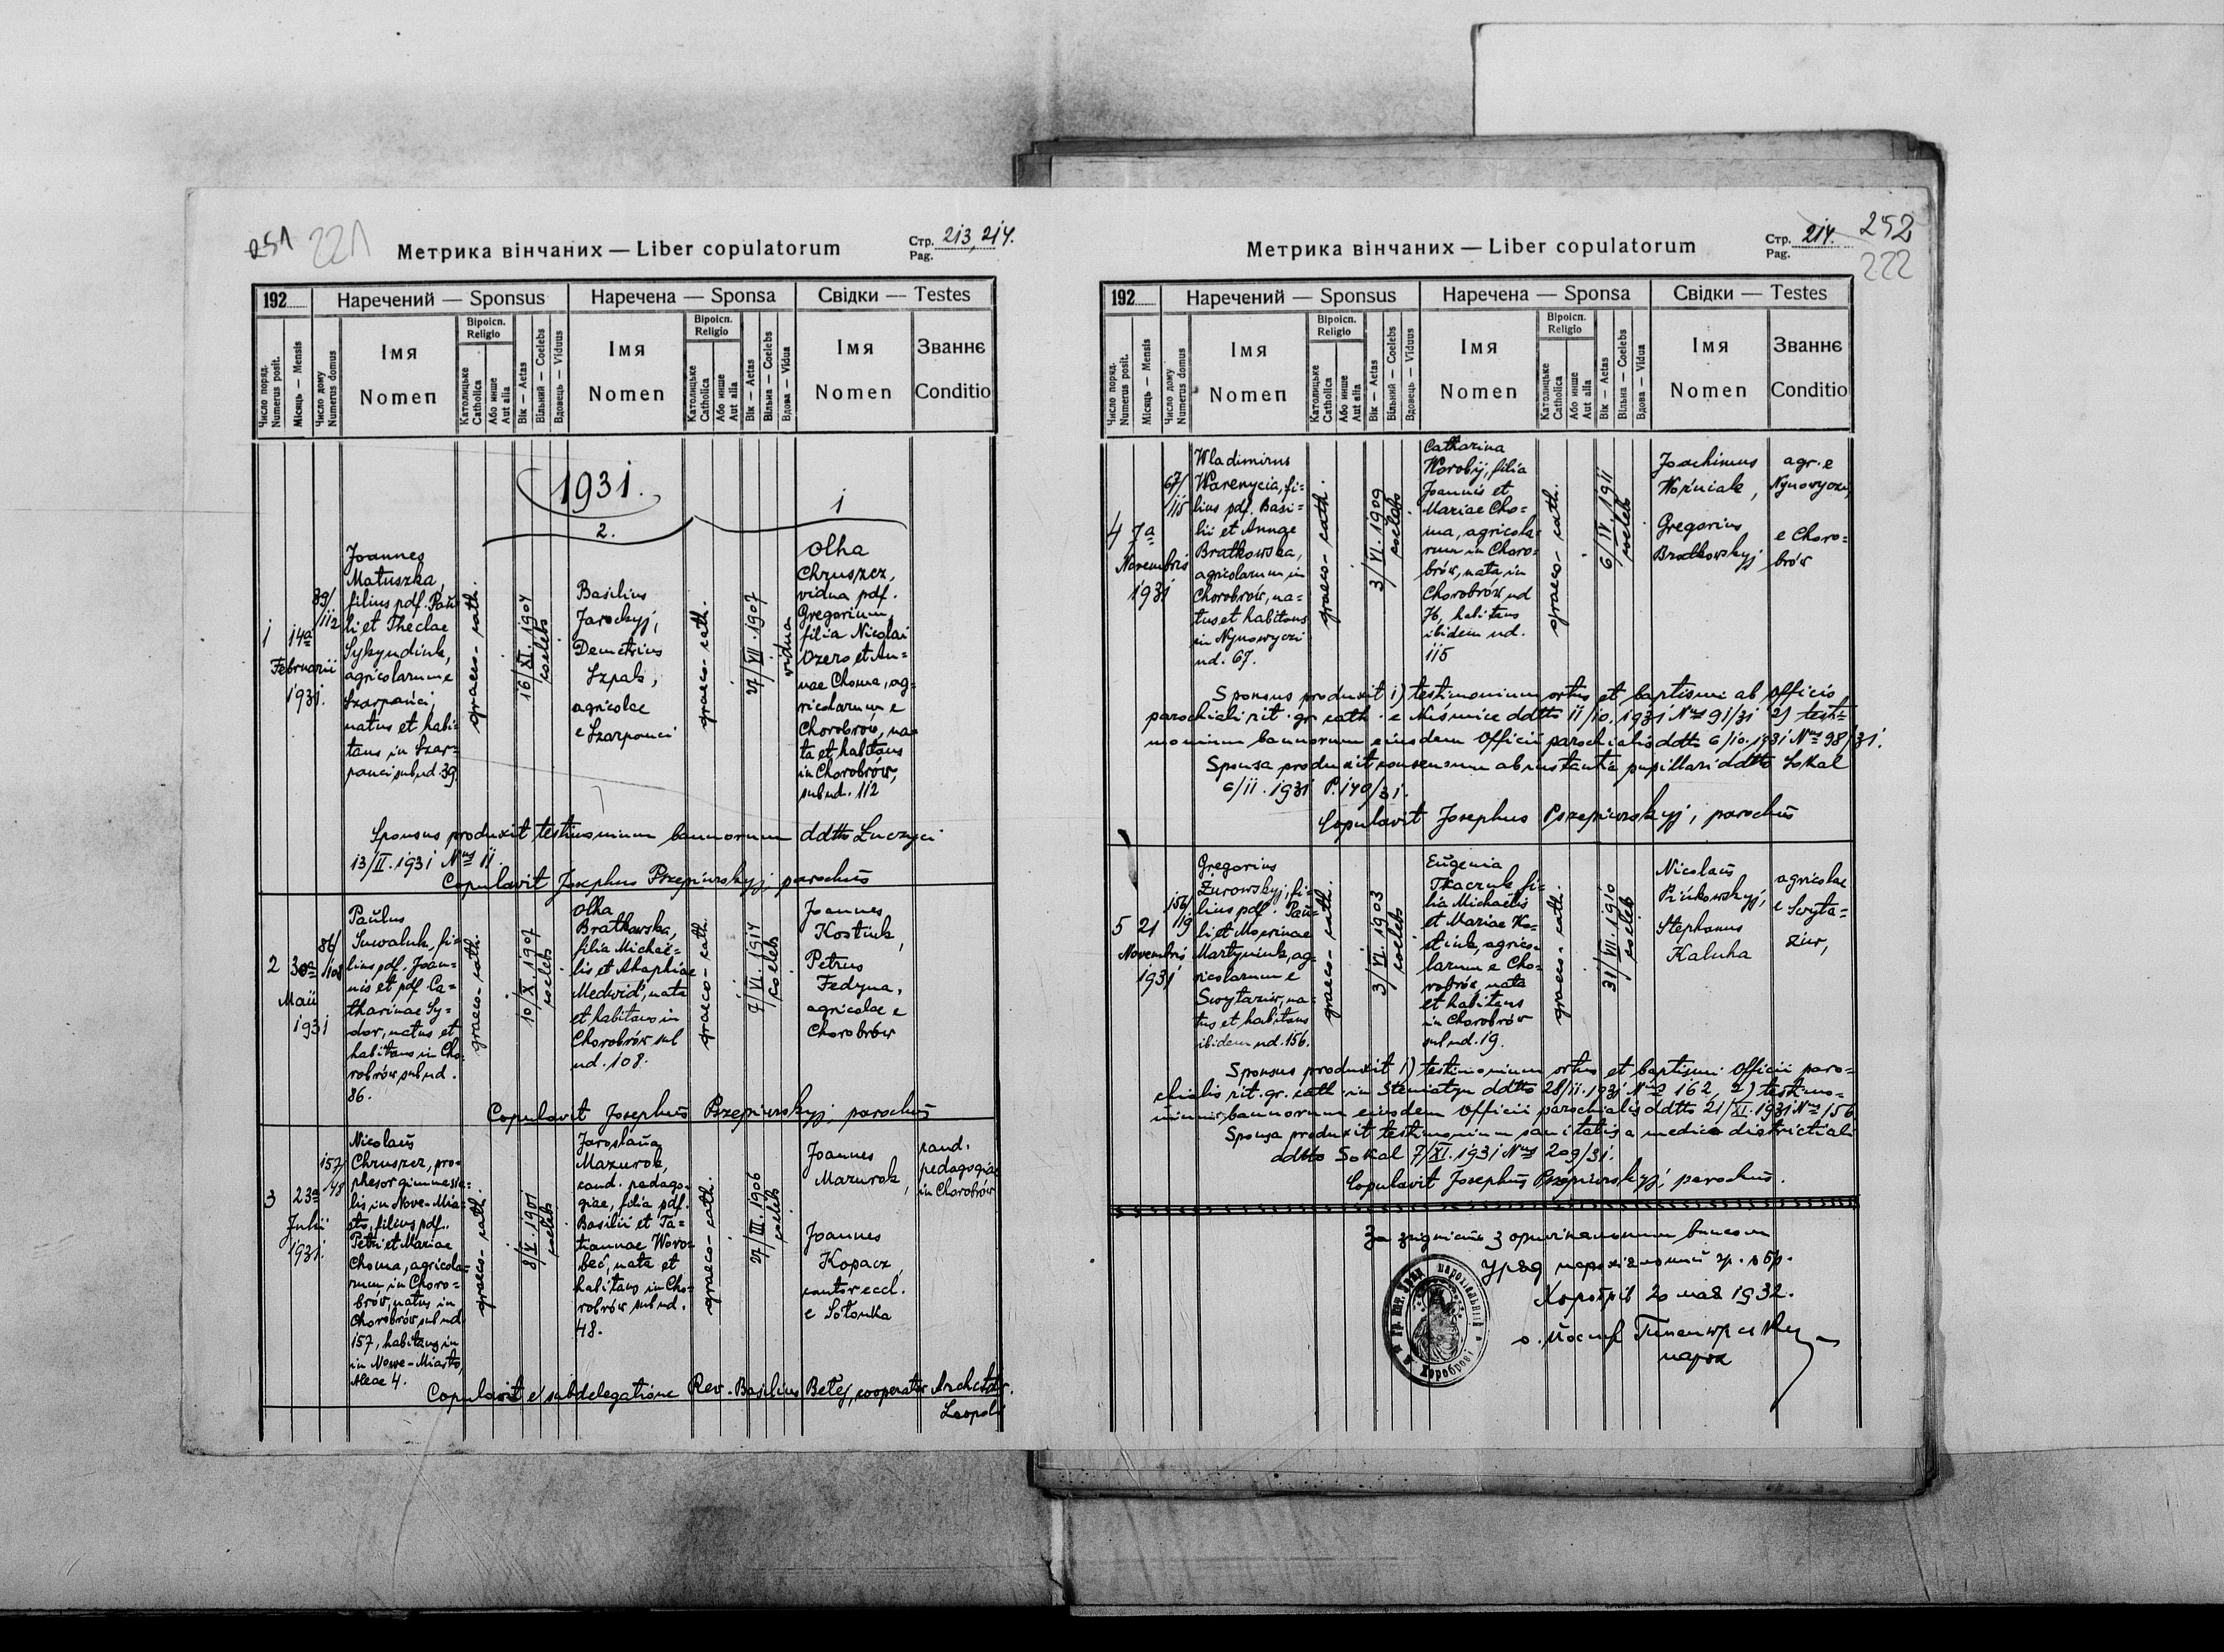 251 221
Метрика вінчаних — Liber copulatorum
Стр. Pag. 213, 214.
192
Наречений — Sponsus
Наречена — Sponsa
Свідки — Testes
Число поряд. Numerus posit.
Місяць — Mensis
Число дому Numerus domus
Імя Nomen
Віроісп. Religio
Католицьке Catholica
Або инше Aut alia
Вік — Aetas
Вільний — Coelebs
Вдовець — Viduus
Імя Nomen
Віроісп. Religio
Католицьке Catholica
Або инше Aut alia
Вік — Aetas
Вільна — Coelebs
Вдова — Vidua
Імя Nomen
Званнє Conditio
1931.
2.
1
1
14a
Februarii
1931.
39/
112
Joannes
Matuszka,
filius pdf. Pau-
li et Theclae
Sykyndiuk,
agricolarum e
Szarpańci,
natus et habi-
tans in Szar-
panci sub nd. 39
graeco-cath.
16/XI.1904
coelebs
Basilius
Jarockyj,
Demetrius
Szpak,
agricolae
e Szarpanci
graeco-cath.
27/VII.1907
vidua
Olha
Chruszcz,
vidua pdf.
Gregorium,
filia Nicolai
Ozero et An-
nae Choma, ag-
ricolarum e
Chorobrów, na-
ta et habitans
in Chorobrów,
sub nd. 112
Sponsus produxit testimonium bannorum ddtto Luczyci
13/II.1931 Nus 11.
Copulavit Josephus Pszepiurskyj, parochus
2
30a
Maii
1931
86/
108
Paulus
Suwaluk, fi-
lius pdf. Joan-
nis et pdf. Ca-
tharinae Sy-
dor, natus et
habitans in Cho-
robrów, sub nd.
86.
graeco-cath.
10/X.1907
coelebs
Olha
Bratkowska,
filia Michae-
lis et Ahaphiae
Medwid', nata
et habitans in
Chorobrów sub
nd. 108.
graeco-cath.
9/VI.1914
coelebs
Joannes
Kostiuk,
Petrus
Fedyna,
agricolae e
Chorobrów
Copulavit Josephus Pszepiurskyj, parochus
3
23a
Julii
1931.
157/
48
Nicolaus
Chruszcz, pro-
phesor gimnasia-
lis in Nowe-Mia-
sto, filius pdf.
Petri et Mariae
Choma, agricola-
rum in Choro-
brów, natus in
Chorobrów sub nd
157, habitans in
in Nowe-Miasto,
Aleae 4.
graeco-cath.
8/V.1901
coelebs
Jaroslaua
Mazurok,
cand. pedago-
giae, filia pdf.
Basilii et Ta-
tiannae Woro-
beć, nata et
habitans in Cho-
robrów sub nd.
48.
graeco-cath.
27/III.1906
coelebs
Joannes
Mazurok,
cand.
pedagogiae
in Chorobrów
Joannes
Kopacz,
cantor eccl.
e Sołonka
Copulavit e subdelegatione Rev. Basilius Betej, cooperator Archcatdr.
Leopoli
Метрика вінчаних — Liber copulatorum
Стр. Pag. 214.
252
222
192
Наречений — Sponsus
Наречена — Sponsa
Свідки — Testes
Число поряд. Numerus posit.
Місяць — Mensis
Число дому Numerus domus
Імя Nomen
Віроісп. Religio
Католицьке Catholica
Або инше Aut alia
Вік — Aetas
Вільний — Coelebs
Вдовець — Viduus
Імя Nomen
Віроісп. Religio
Католицьке Catholica
Або инше Aut alia
Вік — Aetas
Вільна — Coelebs
Вдова — Vidua
Імя Nomen
Званнє Conditio
4
7a
Novembris
1931
67/
115
Wladimirus
Warenycia, fi-
lius pdf. Basi-
lii et Annae
Bratkowska,
agricolarum in
Chorobrów, na-
tus et habitans
in Nynowyczi
nd. 67.
graeco-cath.
3/VI.1909
coelebs
Catharina
Worobij, filia
Joannis et
Mariae Cho-
ma, agricola-
rum in Choro-
brów, nata in
Chorobrów nd
76, habitans
ibidem nd.
115
graeco-cath.
6/IV.1911
coelebs
Joachimus
Woźniak,
agr. e
Nynowyczi,
Gregorius
Bratkowskyj
e Choro-
brów
Sponsus produxit 1) testimonium ortus et baptismi ab Officio
parochiali rit. gr. cath. e Nuśmice ddtto 11/10.1931 Nus 91/31 2) testi-
monium bannorum eiusdem Officii parochialis ddtto 6/10.1931 Nus 98/31.
Sponsa produxit consensum ab instantia pupillari ddtto Sokal
6/11.1931 P.140/31.
Copulavit Josephus Pszepiurskyj, parochus
5
21
Novembris
1931
156/
19
Gregorius
Żurowskyj, fi-
lius pdf. Pau-
li et Mowrinae
Martyniuk, ag-
ricolarum e
Swytaziw, na-
tus et habitans
ibidem nd. 156.
graeco-cath.
3/VI.1903
coelebs
Eugenia
Tkaczuk, fi-
lia Michaelis
et Mariae Ko-
stiuk, agrico-
larum e Cho-
robrów, nata
et habitans
in Chorobrów
sub nd. 19.
graeco-cath.
31/VII.1910
coelebs
Nicolaus
Pińkowskyj,
Stephanus
Kaluha
agricolae
e Swyta-
ziw,
Sponsus produxit 1) testimonium ortus et baptismi Officii paro-
chialis rit. gr. cath. in Steniatyn ddtto 28/11.1931 Nus 162, 2) testimo-
nium bannorum eiusdem Officii parochialis ddtto 21/XI.1931 Nus 156
Sponsa produxit testimonium sanitatis a medico districtiali
ddtto Sokal 7/XI.1931 Nus 209/31.
Copulavit Josephus Pszepiurskyj, parochus.
За згідність з оригінальним
Уряд парохіяльний гр. об.
Хоробрів 20 мая 1932.
о. Йосиф
парох